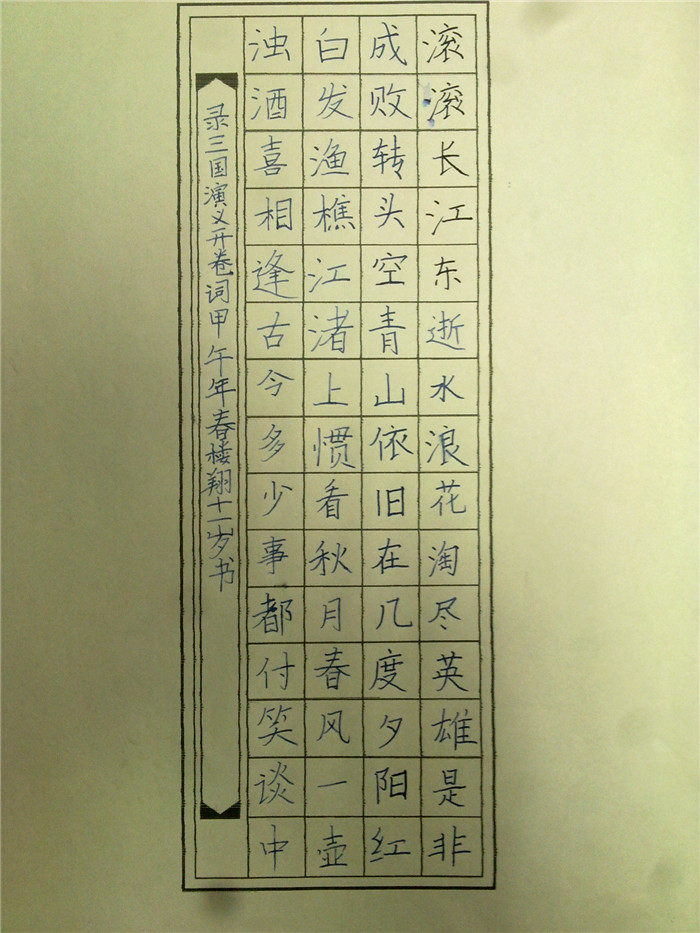 滚滚长江东逝水浪花淘尽英雄是非
成败转头空青山依旧在几度夕阳红
白发渔樵江渚上惯看秋月春风一壶
浊酒喜相逢古今多少事都付笑谈中
录三国演义开卷词甲午年春楼翔十一岁书